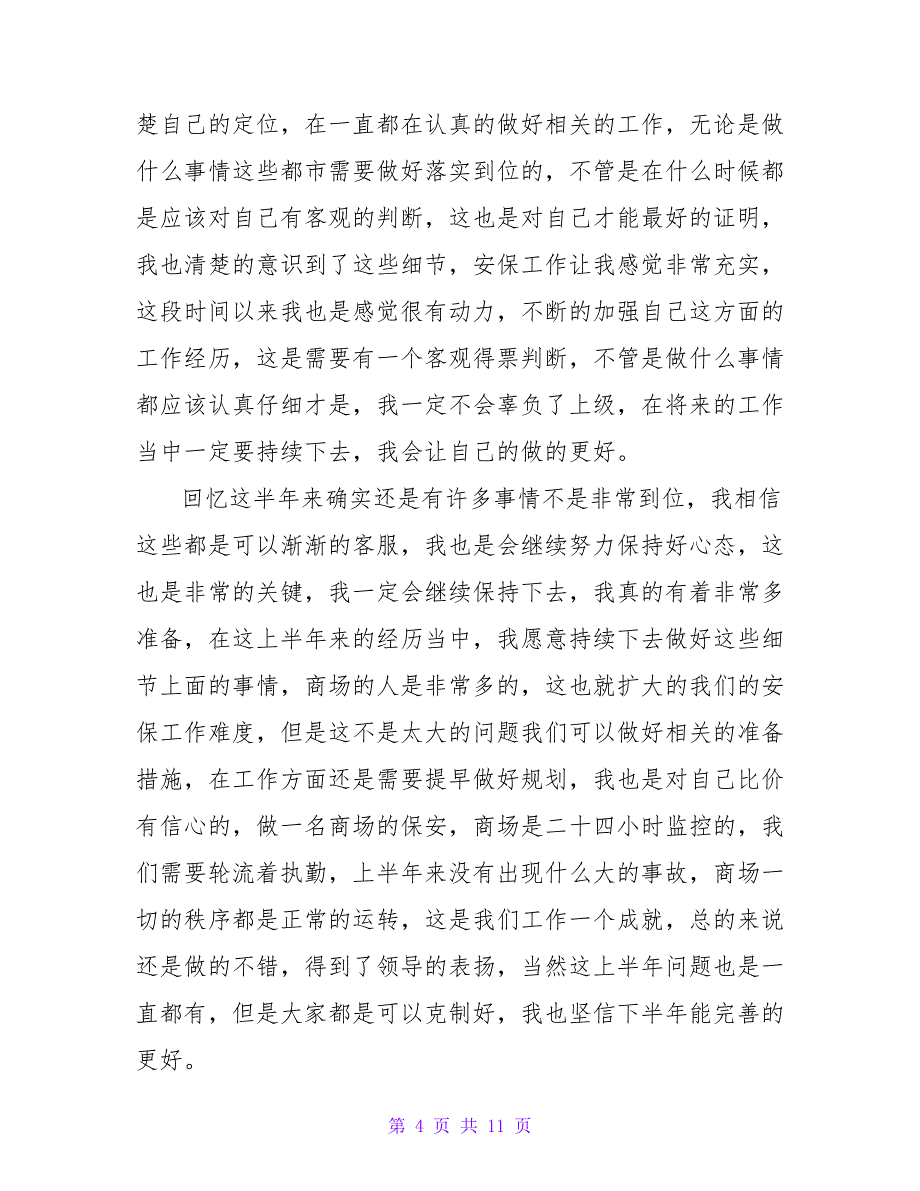 楚自己的定位，在一直都在认真的做好相关的工作，无论是做
什么事情这些都市需要做好落实到位的，不管是在什么时候都
是应该对自己有客观的判断，这也是对自己才能最好的证明，
我也清楚的意识到了这些细节，安保工作让我感觉非常充实，
这段时间以来我也是感觉很有动力，不断的加强自己这方面的
工作经历，这是需要有一个客观得票判断，不管是做什么事情
都应该认真仔细才是，我一定不会辜负了上级，在将来的工作
当中一定要持续下去，我会让自己的做的更好。
回忆这半年来确实还是有许多事情不是非常到位，我相信
这些都是可以渐渐的客服，我也是会继续努力保持好心态，这
也是非常的关键，我一定会继续保持下去，我真的有着非常多
准备，在这上半年来的经历当中，我愿意持续下去做好这些细
节上面的事情，商场的人是非常多的，这也就扩大的我们的安
保工作难度，但是这不是太大的问题我们可以做好相关的准备
措施，在工作方面还是需要提早做好规划，我也是对自己比价
有信心的，做一名商场的保安，商场是二十四小时监控的，我
们需要轮流着执勤，上半年来没有出现什么大的事故，商场一
切的秩序都是正常的运转，这是我们工作一个成就，总的来说
还是做的不错，得到了领导的表扬，当然这上半年问题也是一
直都有，但是大家都是可以克制好，我也坚信下半年能完善的
更好。
第 4 页 共 11 页